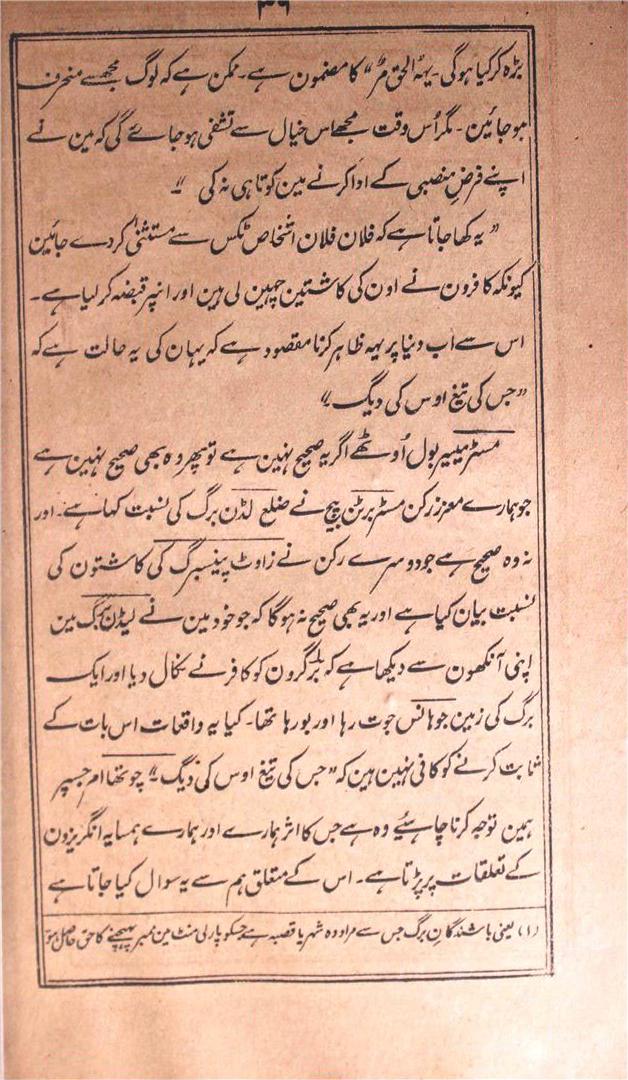 ۳۶
بڑہ کر کیا ہوگی۔ یہہ "الحق مرٌّ" کا مضمون ہے۔ ممکن ہے کہ لوگ مجھسے منحرف
ہو جائین۔ مگر اُس وقت مجھے اس خیال سے تشفی ہو جائے گی کہ مین نے
اپنے فرض منصبی کے ادا کرنے مین کوتاہی نہ کی"
"یہ کہا جاتا ہے کہ فلان فلان اشخاص ٹکس سے مستثنیٰ کردے جائین
کیونکہ کافرون نے اون کی کاشتین چہین لی ہین اور انپر قبضہ کر لیا ہے۔
اس سے اب دنیا پر یہہ ظاہر کرنا مقصود ہے کہ یہان کی یہ حالت ہے کہ
"جس کی تیغ اوس کی دیگ"
مسٹر میییر بول اُوٹھے اگر یہ صحیح نہین ہے تو پھر وہ بھی صحیح نہین ہے
جو ہمارے معزز رکن مسٹر برٹن پیچ نے ضلع لڈن برگ کی نسبت کہا ہے۔ اور
نہ وہ صحیح ہے جو دوسرے رکن نے زاوٹ پینسبرگ کی کاشتون کی
نسبت بیان کیا ہے اور یہ بھی صحیح نہ ہوگا کہ جو خود مین نے لیڈن برگ مین
اپنی آنکھون سے دیکھا ہے کہ برگرون کو کافر نے نکال دیا اور ایک
برگ کی زمین جوہانس جوت رہا اور بو رہا تھا۔ کیا یہ واقعات اس بات کے
ثابت کرنے کو کافی نہین ہین کہ "جس کی تیغ اوس کی دیگ" چوتھا امر جسپر
ہمین توجہ کرنا چاہیئے وہ ہے جس کا اثر ہمارے اور ہمارے ہمسایہ انگریزون
کے تعلقات پر پڑتا ہے۔ اس کے متعلق ہم سے یہ سوال کیا جاتا ہے
(۱) یعنی باشندگان برگ جس سے مراد وہ شہر یا قصبہ ہے جسکو پارلی منٹ مین ممبر بھیجنے کا حق حاصل ہو